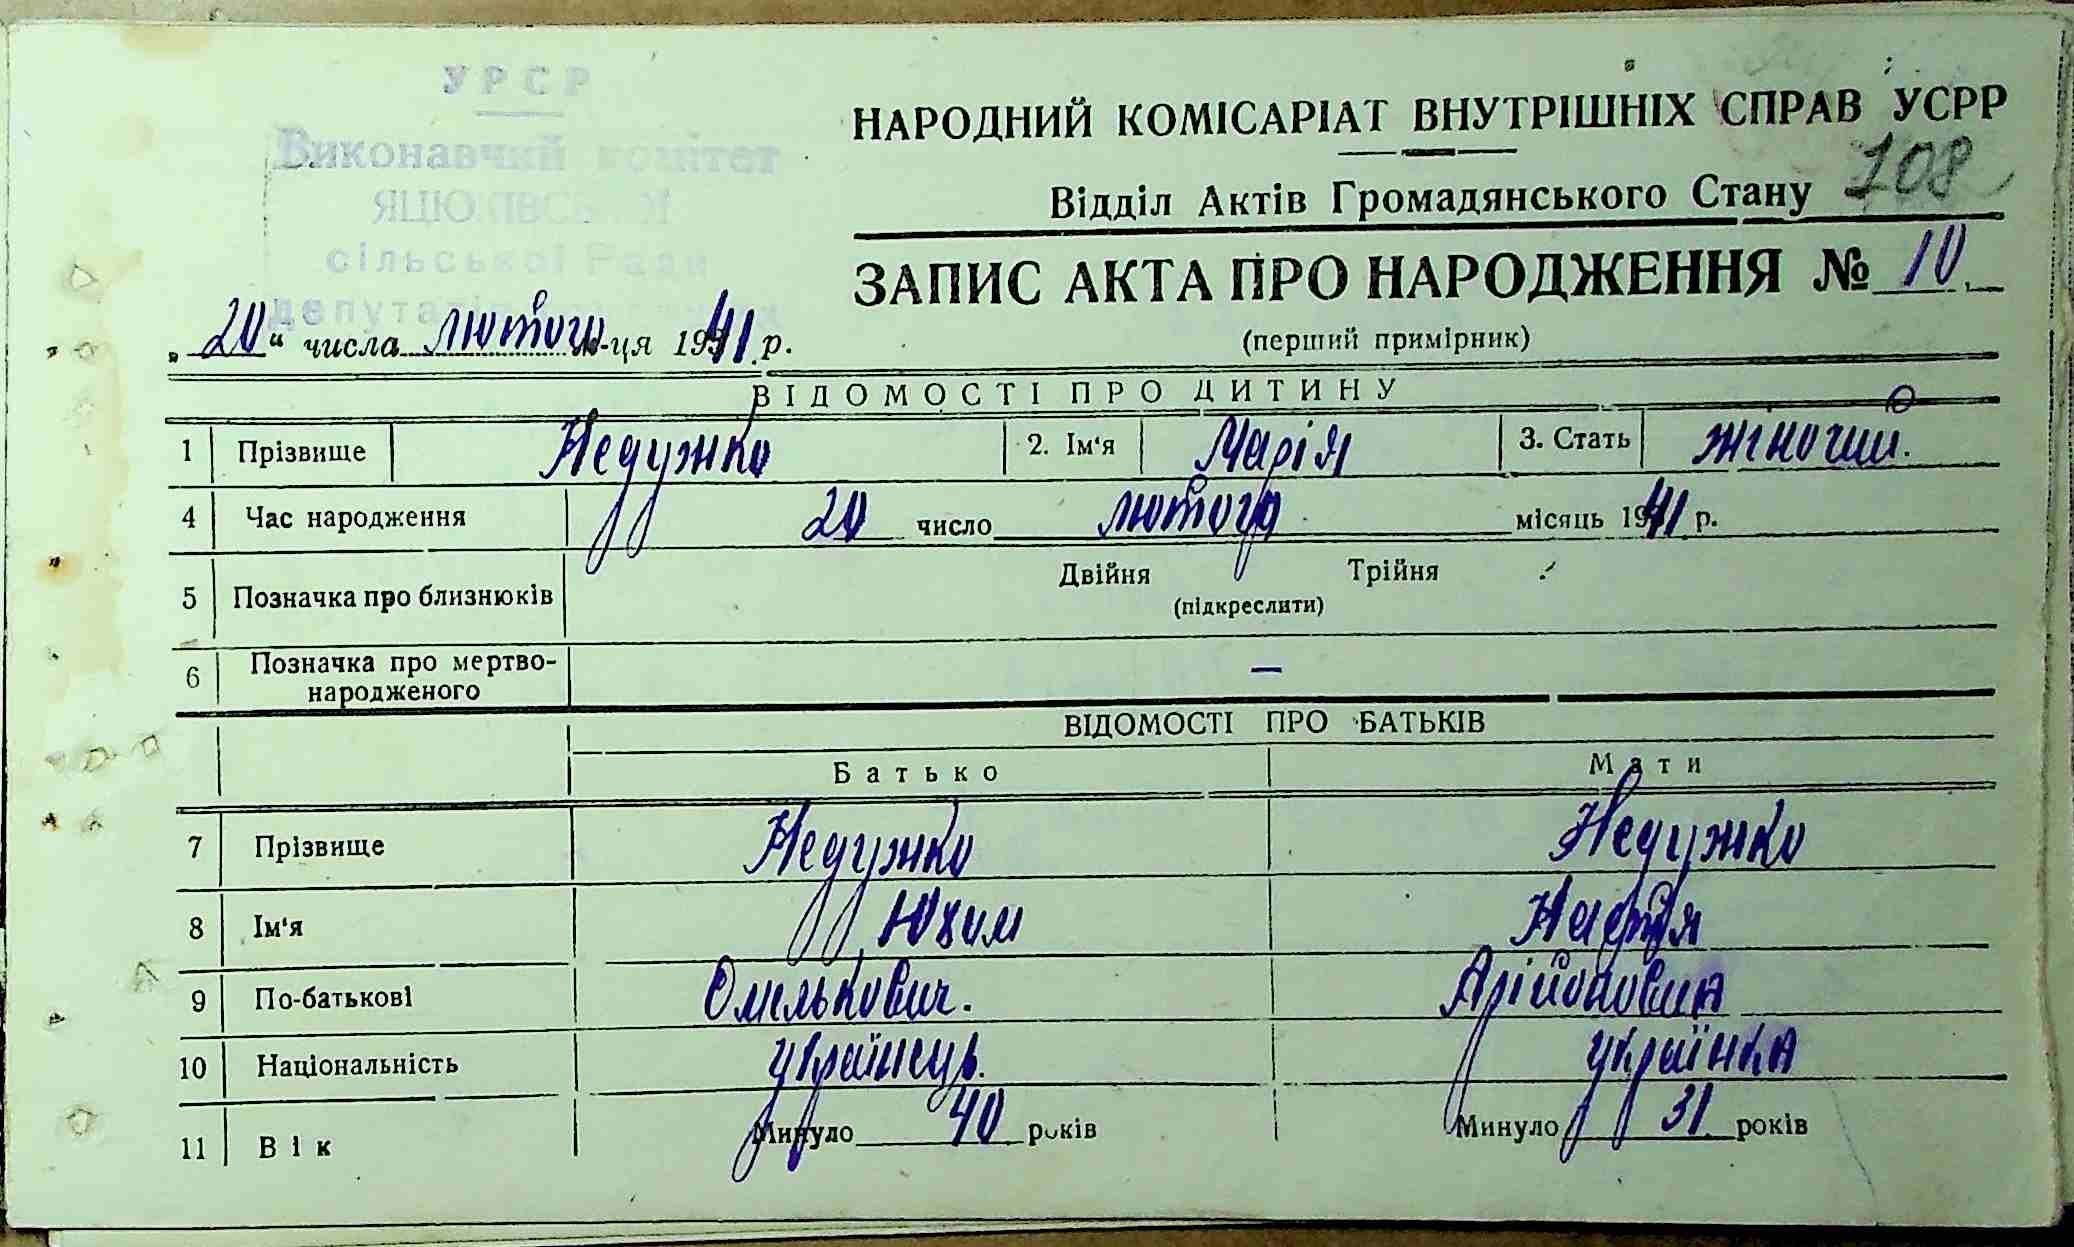 УРСР
Виконавчий комітет
ЯЦЮКІВСЬКОЇ
сільської Ради
депутатів
НАРОДНИЙ КОМІСАРІАТ ВНУТРІШНІХ СПРАВ УСРР
108
Відділ Актів Громадянського Стану
ЗАПИС АКТА ПРО НАРОДЖЕННЯ № 10
(перший примірник)
„20“ числа лютого м-ця 1941 р.
ВІДОМОСТІ ПРО ДИТИНУ
1 Прізвище Недужко 2. Ім'я Марія 3. Стать жіночий.
4 Час народження 20 число лютого місяць 1941 р.
5 Позначка про близнюків Двійня Трійня
(підкреслити)
6 Позначка про мертво-
народженого —
ВІДОМОСТІ ПРО БАТЬКІВ
Батько Мати
7 Прізвище Недужко Недужко
8 Ім'я Юхим Настя
9 По-батькові Омелькович.
10 Національність українець. українка
11 Вік Минуло 40 років Минуло 31 років